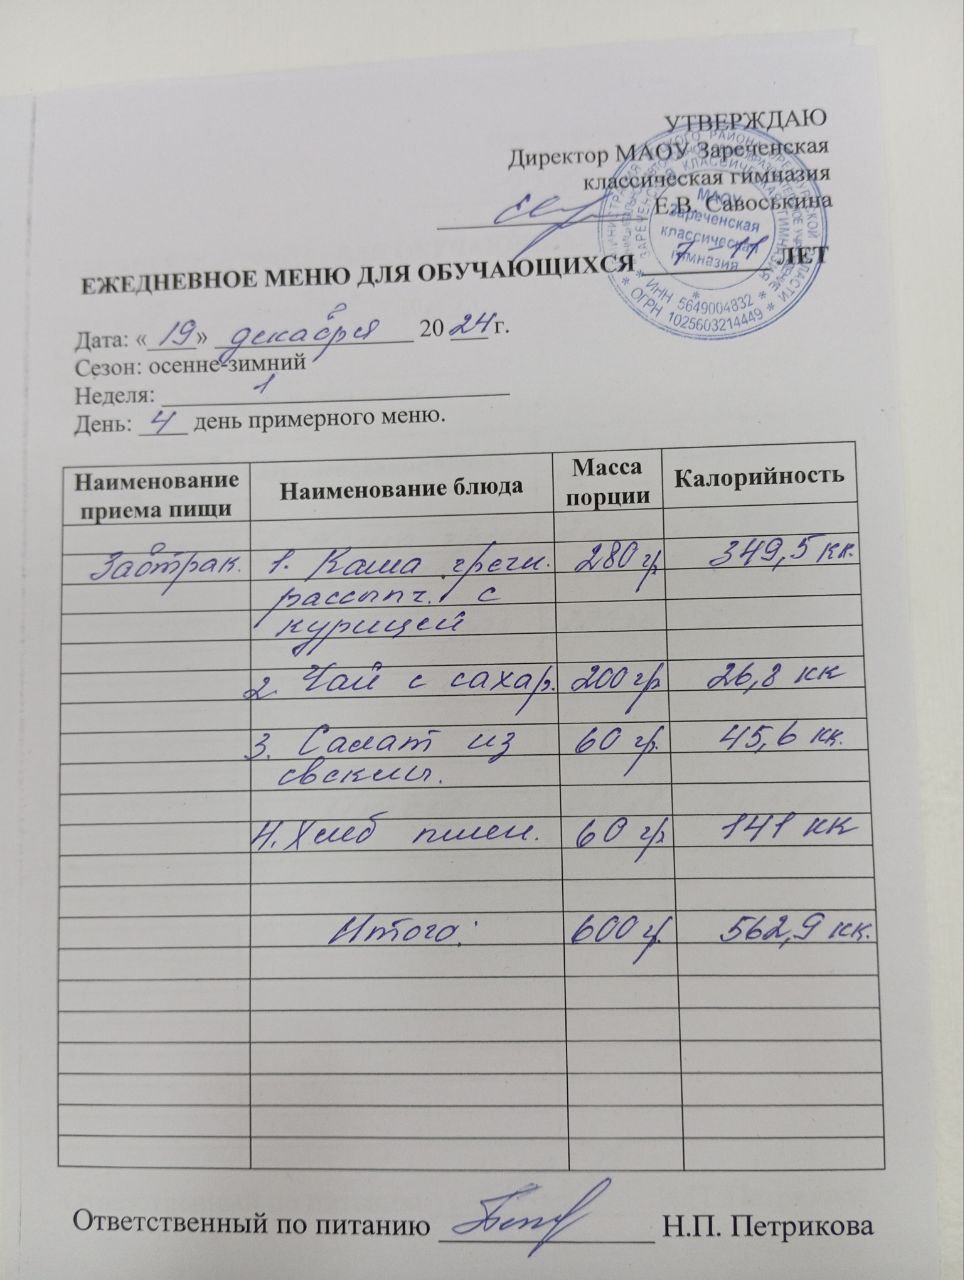 УТВЕРЖДАЮ
Директор МАОУ Зареченская
классическая гимназия
Е.В. Савоськина
МАОУ
Зареченская
классическая
гимназия
* ИНН 5649004832 *
* ОГРН 1025603214449 *
ЕЖЕДНЕВНОЕ МЕНЮ ДЛЯ ОБУЧАЮЩИХСЯ 7-11 ЛЕТ
Дата: «19» декабря 2024 г.
Сезон: осенне-зимний
Неделя: 1
День: 4 день примерного меню.
Наименование приема пищи Наименование блюда Масса порции Калорийность
Завтрак. 1. Каша гречн. 280 гр 349,5 кк.
рассыпч. с
курицей
2. Чай с сахар. 200 гр 26,8 кк
3. Салат из 60 гр. 45,6 кк.
свеклы.
4. Хлеб пшен. 60 гр 141 кк
Итого: 600 г. 562,9 кк.
Ответственный по питанию Н.П. Петрикова